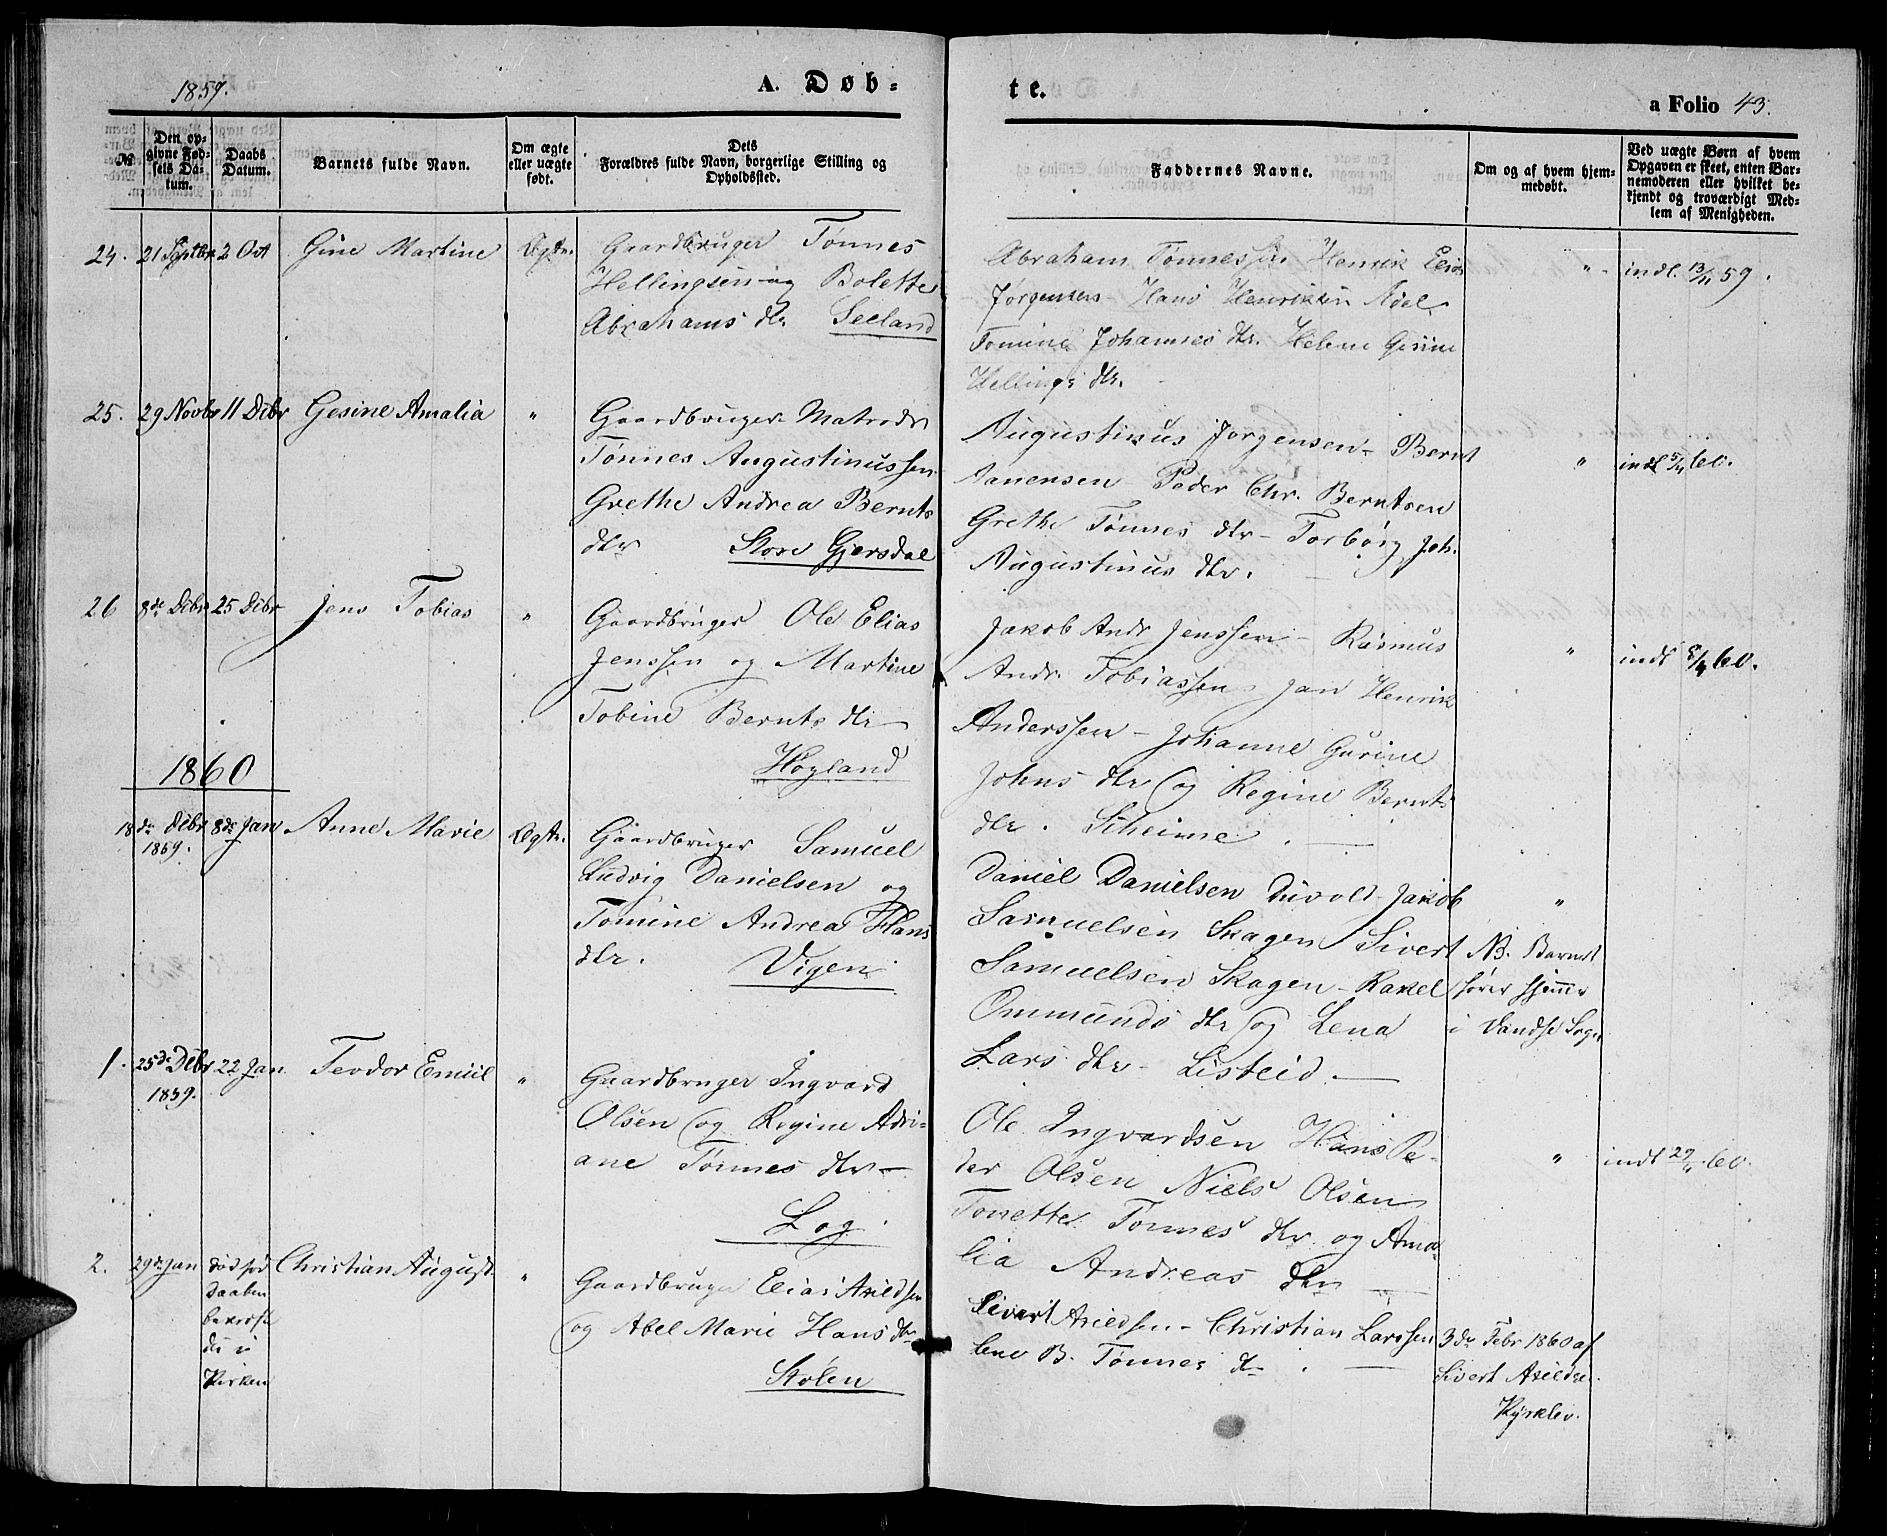 1859.
A. Døb-
te.
a Folio 43.
№
Den op-
givne Fød-
sels Da-
tum.
Daabs
Datum.
Barnets fulde Navn.
Om ægte
eller uægte
født.
Dets
Forældres fulde Navn, borgerlige Stilling og
Opholdssted.
Faddernes Navne.
Om og af hvem hjem-
medøbt.
Ved uægte Børn af hvem
Opgaven er skeet, enten Bar-
nemoderen eller hvilket be-
kjendt og troværdigt Med-
lem af Menigheden.
24. 21 Septbr 2 Oct Gine Martine Ægte. Gaardbruger Tønnes
Hellingsen og Bolette
Abrahams dtr Seeland
Abraham Tønnessen Henrik Elias
Jørgensen - Hans Henriksen Adel
Tomine Johannes dtr. Helene Gesine
Hellings dtr.
" indl. 13/11 59.
25. 29 Novbr 11 Dcbr Gesine Amalia " Gaardbruger Matrods
Tønnes Augustinussen
Grethe Andrea Bernts
dtr Store Gjersdal
Augustinus Jørgensen - Bernt
Aanensen Peder Chr. Berntsen
Grethe Tønnes dtr - Torborg Joh.
Augustinus dtr.
" indl 5/4 60.
26 8de Dcbr 25 Dcbr Jens Tobias " Gaardbruger Ole Elias
Jenssen og Martine
Tobine Bernts dtr
Høyland
Jakob Andr Jenssen - Rasmus
Andr. Tobiassen Jan Henrik
Anderssen - Johanne Gurine
Johns dtr og Regine Bernts
dtr. Scheime.
" indl 8/4 60.
1860
18de Dcbr
1859.
8de Jan Anne Marie Ægte. Gaardbruger Samuel
Ludvig Danielsen og
Tomine Andrea Hans
dtr. Vigen
Daniel Danielsen Duvold Jakob
Samuelsen Skagen Sivert
Samuelsen Skagen - Rakel
Ommunds dtr og Lena
Lars dtr - Listeid.
"
NB. Barnet
hører hjemme
i Vandse Sogn
1. 25de Dcbr
1859.
22 Jan Teodor Emiil " Gaardbruger Ingvard
Olsen og Regine Adri-
ane Tønnes dtr
Log.
Ole Ingvardsen Hans Pe-
der Olsen Niels Olsen
Tonette Tønnes dtr og Ama-
lia Andreas dtr
" indl 29/4 60.
2. 29de Jan død før
Daaben
bekræfte-
des i
Kirken
Christian August. " Gaardbruger Elias Axeldsen
og Abel Marie Hans dtr
Stølen
Sivert Axeldsen - Christian Larssen
Lene B. Tønnes dtr.
3de Febr 1860 af
Sivert Axeldsen